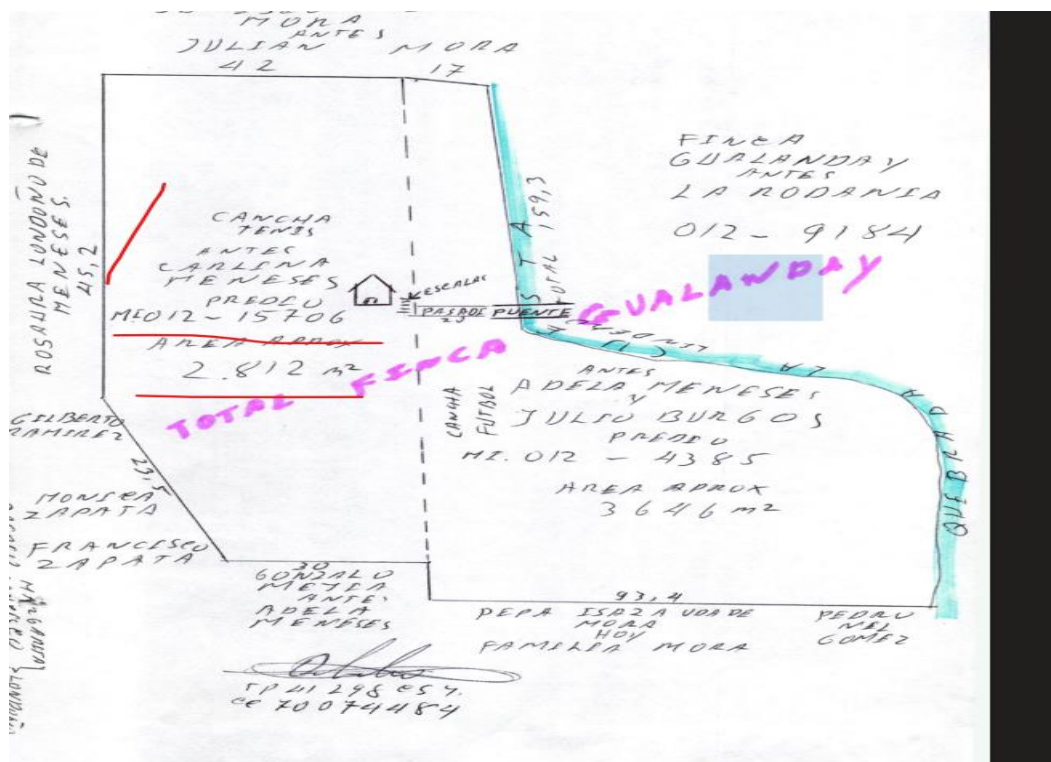 MORA
ANTES
JULIAN MORA
42
17
ROSAURA LONDOÑO DE
MENESES.
45,2
CANCHA
TENIS
ANTES
CARLINA
MENESES
PREDIO
MI.012-15706
AREA APROX
2.812 m²
ESCALAS
PASADE PUENTE
23
TOTAL 159,3
FINCA
GUALANDAY
ANTES
LA RODANIA
012-9184
TOTAL FINCA GUALANDAY
LINDERO
QUEBRADA LA
CANCHA
FUTBOL
ANTES
ADELA MENESES
Y
JULIO BURGOS
PREDIO
MI. 012-4385
AREA APROX
3646 m²
GILBERTO
RAMIREZ
23,5
MONICA
ZAPATA
FRANCISCO
ZAPATA
30
GONZALO
MEJIA
ANTES
ADELA
MENESES
93,4
PEPA ISAZA VDA DE
MORA
HOY
FAMILIA MORA
PEDRO
NEL
GOMEZ
TP 41298 CSJ.
CC 70074484